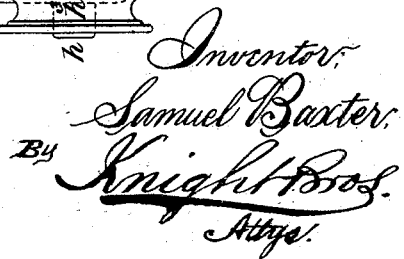 h h
Inventor:
Samuel Baxter.
By Knight Bros.
Attys.